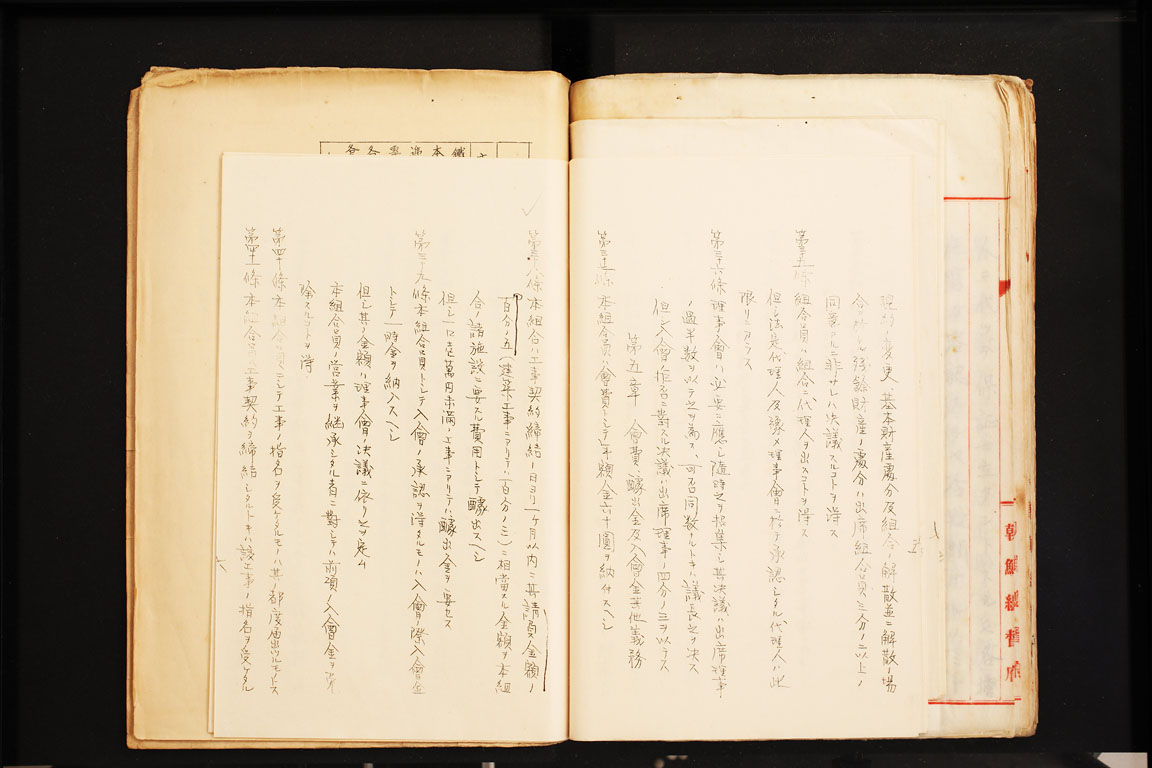 規約ノ変更、基本財産處分及組合ノ解散並ニ解散ノ場
合ニ於ケル残餘財産ノ處分ハ出席組合員三分ノ二以上ノ
同意アルニ非サレハ決議スルコトヲ得ス
第三十五條 組合員ハ組合ニ代理人ヲ出スコトヲ得ス
但シ法定代理人及豫メ理事會ニ於テ承認シタル代理人ハ此
限リニアラス
第三十六條 理事會ハ必要ニ應シ隨時之ヲ招集シ其決議ハ出席理事
ノ過半数ヲ以テ之ヲ為ス、可否同数ナルトキハ議長之ヲ決ス
但シ入會ノ拒否ニ對スル決議ハ出席理事ノ四分ノ三ヲ以テス
第五章 會費、醵出金及入會金其他義務
第三十七條 本組合員ハ會費トシテ年額金六十圓ヲ納付スヘシ
五
第三十八條 本組合ハ工事契約締結ノ日ヨリ一ヶ月以内ニ其請負金額ノ
百分ノ五(建築工事ニアリテハ百分ノ三)ニ相當スル金額ヲ本組
合ノ諸施設ニ要スル費用トシテ醵出スヘシ
但シ一口壱萬円未満ノ工事ニアリテハ醵出金ヲ要セス
第三十九條 本組合員トシテ入會ノ承認ヲ得タルモノハ入會ノ際入會金
トシテ一時金ヲ納入スヘシ
但シ其ノ金額ハ理事會ノ決議ニ依リ之ヲ定ム
本組合員ノ営業ヲ継承シタル者ニ對シテハ前項ノ入會金ヲ免
除スルコトヲ得
第四十條 本組合員ニシテ工事ノ指名ヲ受ケタルモノハ其都度届出ツルモノトス
第四十一條 本組合員工事契約ヲ締結シタルトキハ該工事ノ指名ヲ受ケタル
六
朝鮮総督府